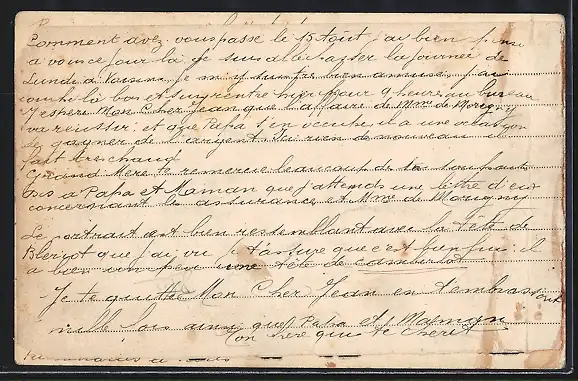 Comment avez vous passé le 15 août j'ai bien pensé
a vous ce jour la je suis allé passer la journée de
Lundi a Voisins je m'y suis bien amusé j'ai
couché la bas et suis rentré hier pour 9 heures au bureau
J'espere Mon Cher Jean que l'affaire de Mme de Morigny
va reussir: et que Papa s'en occupe il a une occasion
de gagner de l'argent Ici rien de nouveau il
fait tres chaud
Grand Mere te remercie beaucoup de ta
Dis a Papa et Maman que j'attends une lettre d'eux
concernant les assurances et Mme de Morigny
Le portrait est bien ressemblant avec la tête de
Bleriot que j'ai vu je t'assure que c'est bien lui: il
a bien un peu une tête de cambriol
Je te quitte Mon Cher Jean en t'embrassant
mille fois ainsi que Papa et Maman
Ton frere qui te cherit